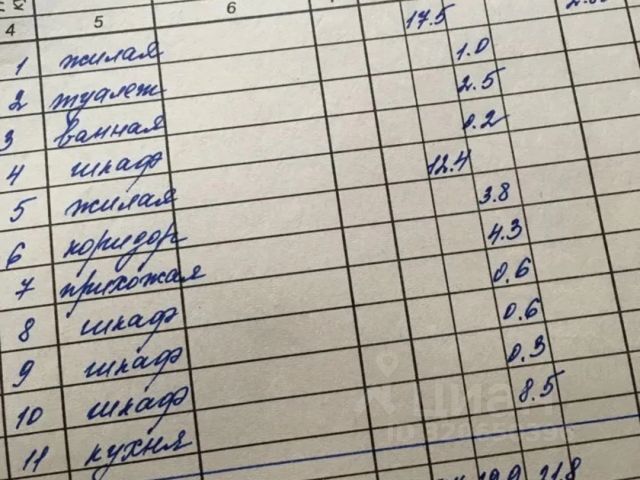 4 5 6
1 жилая 17.5
2 туалет 1.0
3 ванная 2.5
4 шкаф 0.2
5 жилая 12.4
6 коридор 3.8
7 прихожая 4.3
8 шкаф 0.6
9 шкаф 0.6
10 шкаф 0.3
11 кухня 8.5
29.9 21.8
ЦИАН